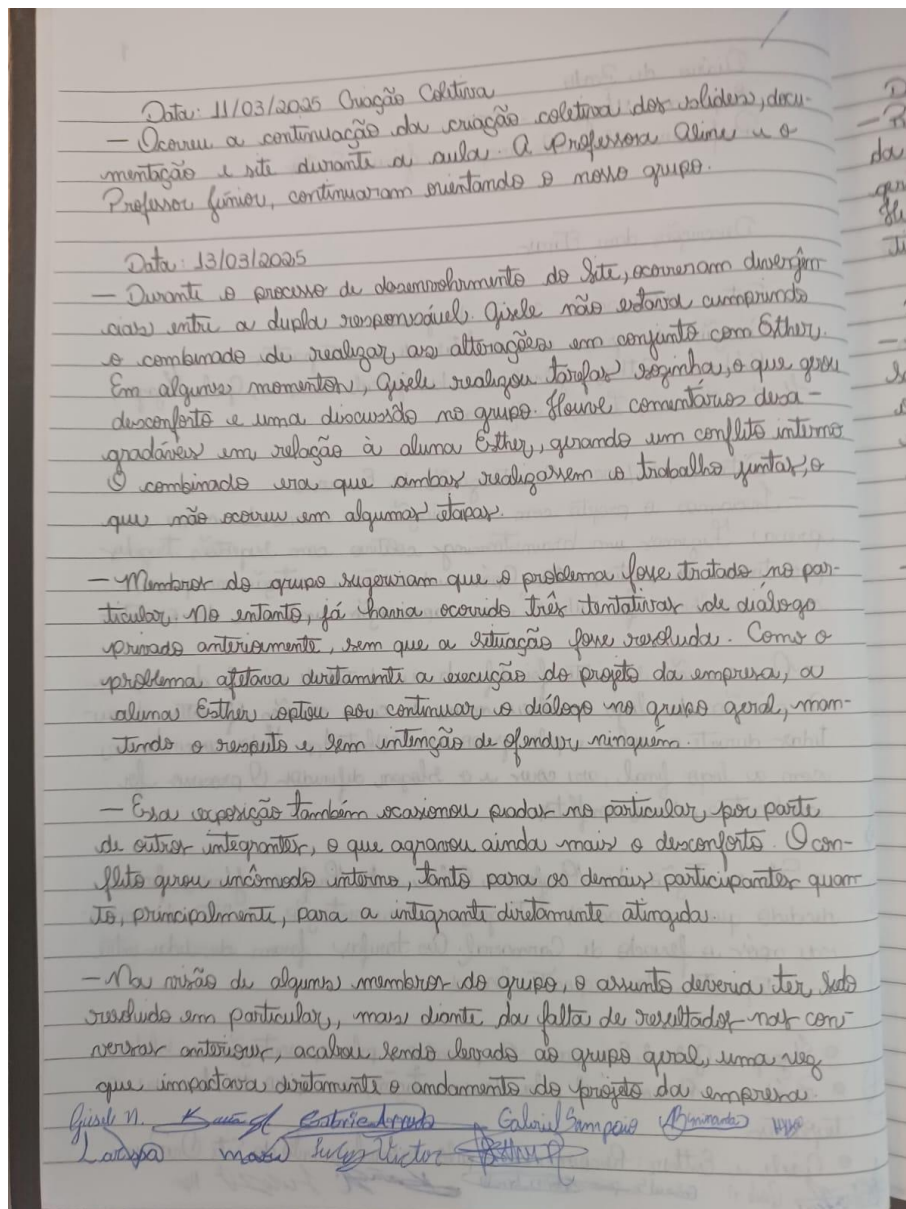 Data: 11/03/2025 Criação Coletiva
— Ocorreu a continuação da criação coletiva dos sliders, docu-
mentação e site durante a aula. A Professora Aline e o
Professor Júnior, continuaram orientando o nosso grupo.
Data: 13/03/2025
— Durante o processo de desenvolvimento do Site, ocorreram divergên
cias entre a dupla responsável. Gisele não estava cumprindo
o combinado de realizar, as alterações em conjunto com Esther.
Em alguns momentos, Gisele realizou tarefas sozinha, o que gerou
desconforto e uma discussão no grupo. Houve comentários desa-
gradáveis em relação à aluna Esther, gerando um conflito interno
O combinado era que ambas realizassem o trabalho juntas, o
que não ocorreu em algumas etapas.
— Membros do grupo sugeriram que o problema fosse tratado no par-
ticular. No entanto, já havia ocorrido três tentativas de diálogo
privado anteriormente, sem que a situação fosse resolvida. Como o
problema afetava diretamente a execução do projeto da empresa, a
aluna Esther optou por continuar o diálogo no grupo geral, man-
tendo o respeito e sem intenção de ofender ninguém.
— Essa exposição também ocasionou piadas no particular por parte
de outros integrantes, o que agravou ainda mais o desconforto. O con-
flito gerou incômodo interno, tanto para os demais participantes quan
to, principalmente, para a integrante diretamente atingida.
— Na visão de alguns membros do grupo, o assunto deveria ter sido
resolvido em particular, mais diante da falta de resultados nas con-
versas anteriores, acabou sendo levado ao grupo geral, uma vez
que impactava diretamente o andamento do projeto da empresa.
Gisele N. Gabriel Arruda Gabriel Sampaio
Larissa Victor